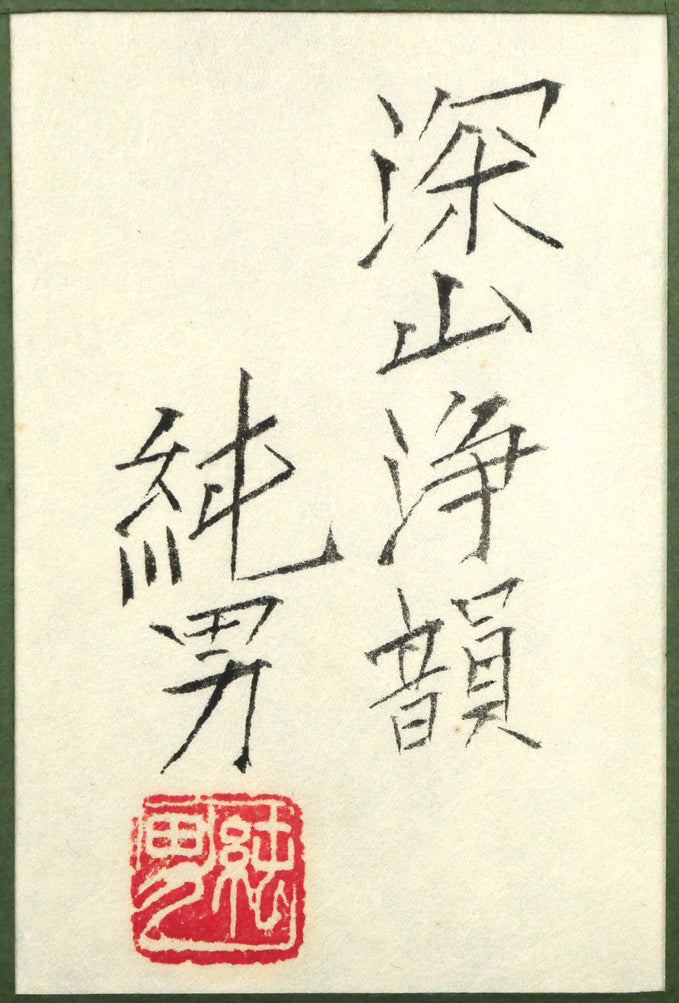 深山浄韻
純男
純男